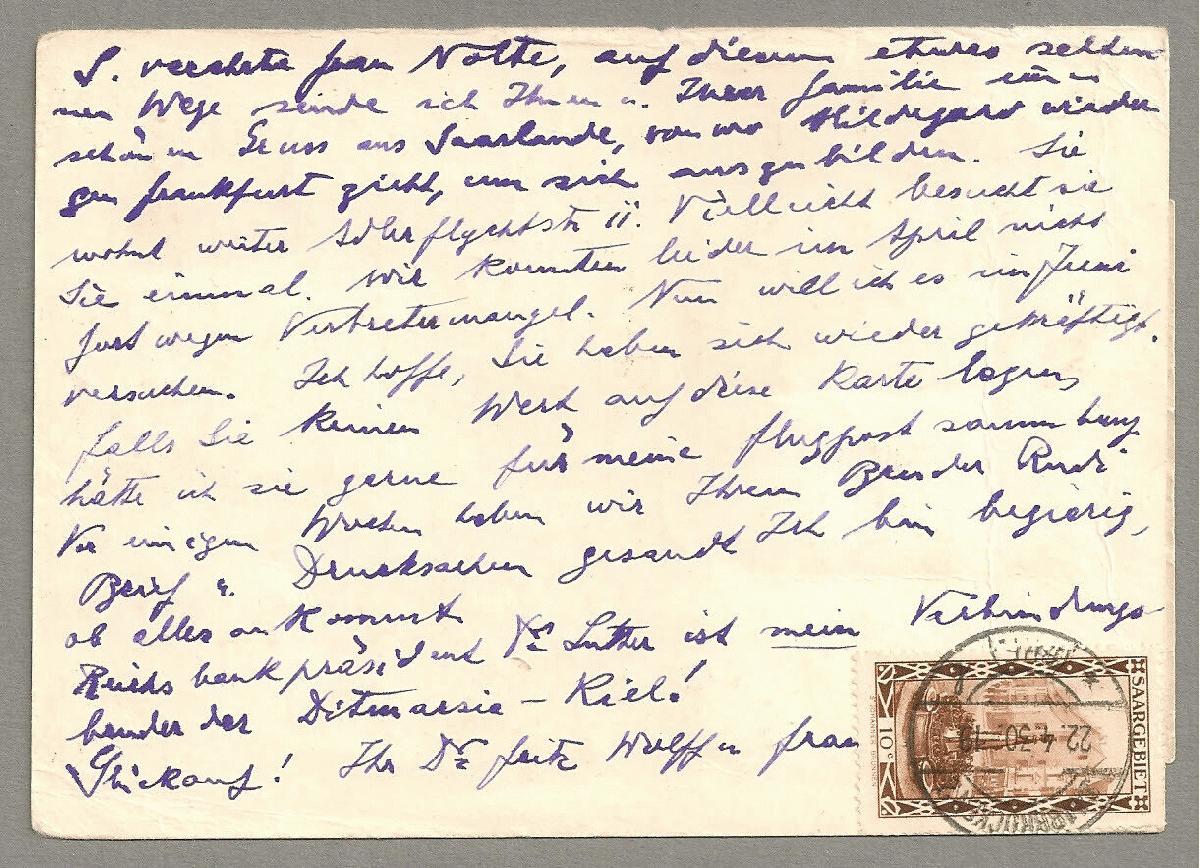 S. verehrte Frau Nolte, auf diesem etwas selte-
nen Wege sende ich Ihnen u. Ihrer Familie einen
schönen Gruss aus Saarlande, von wo Hildegard wieder
gen Frankfurt zieht, um sich auszubilden. Sie
wohnt weiter Adlerflychtstr 11. Vielleicht besucht sie
Sie einmal. Wir konnten leider im April nicht
fort wegen Vertretermangel. Nun will ich es im Juni
versuchen. Ich hoffe, Sie haben sich wieder gekräftigt.
falls Sie keinen Wert auf diese Karte legen,
hätte ich sie gerne für meine Flugpost sammlung
Vor einigen Wochen haben wir Ihrem Bruder Rudi
Brief u. Drucksachen gesandt Ich bin begierig,
ob alles ankommt
Reichsbankpräsident Dr Luther ist mein Verbindungs-
bruder der Ditmarsia – Kiel!
Glückauf! Ihr Dr Fritz Wolff u Frau
SAARGEBIET
10 c
22.4.30.